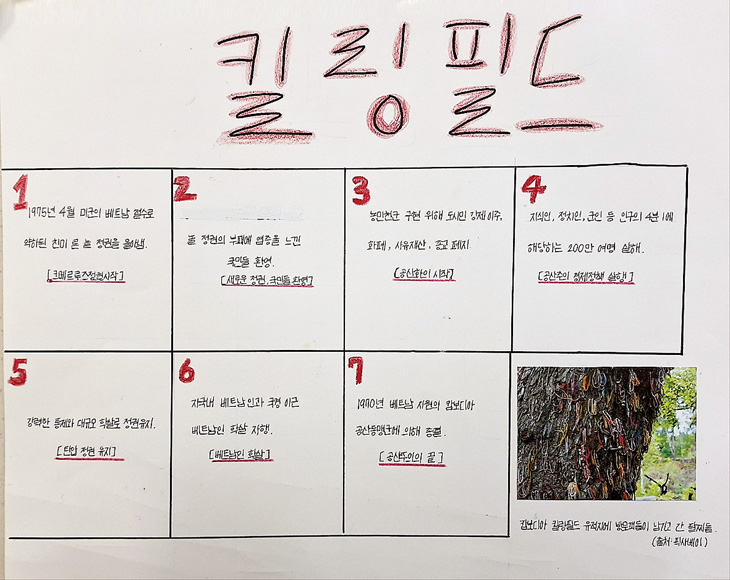 킬링필드
1
1975년 4월 미국의 베트남 철수로
약화된 친미 론 놀 정권을 몰아냄.
[크메르루즈정권시작]
2
론 정권의 부패에 염증을 느낀
국민들 환영.
[새로운 정권, 국민들 환영]
3
농민천국 구현 위해 도시민 강제이주,
화폐, 사유재산, 종교 폐지.
[공산화의 시작]
4
지식인, 정치인, 군인 등 인구의 4분 1에
해당하는 200만 여명 살해.
[공산주의 경제정책 실행]
5
강력한 통제와 대규모 학살로 정권유지.
[탄압 정권 유지]
6
자국내 베트남인과 국경 인근
베트남인 학살 자행.
[베트남인 학살]
7
1970년 베트남 사현의 캄보디아
공산동맹군에 의해 축출.
[공산주의의 끝]
캄보디아 킬링필드 유적지에 방문객들이 남기고 간 팔찌들.
(출처: 픽사베이)